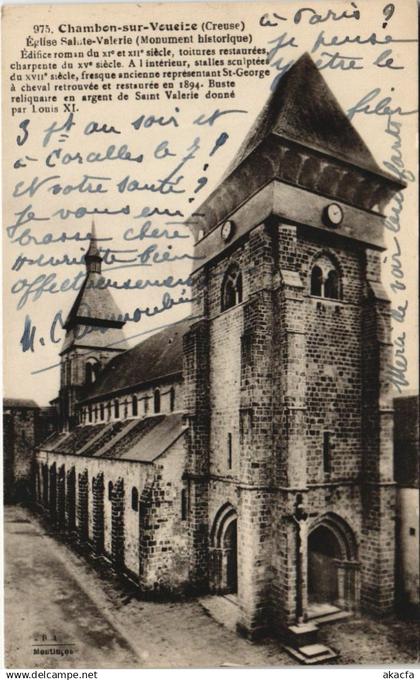 975. Chambon-sur-Voueize (Creuse)
Église Sainte-Valerie (Monument historique)
Edifice roman du XIe et XIIe siècle, toitures restaurées,
charpente du XVe siècle. A l intérieur, stalles sculptées
du XVIIe siècle, fresque ancienne représentant St-George
à cheval retrouvée et restaurée en 1894. Buste
reliquaire en argent de Saint Valerie donné
par Louis XI.
à Paris ?
je pense
filer
3 au soir et
à le 7 ?
et votre santé ?
Je vous em-
brasse chère
bien
affectueusement
M.
Merci de
B A
Montluçon
www.akacfa.com